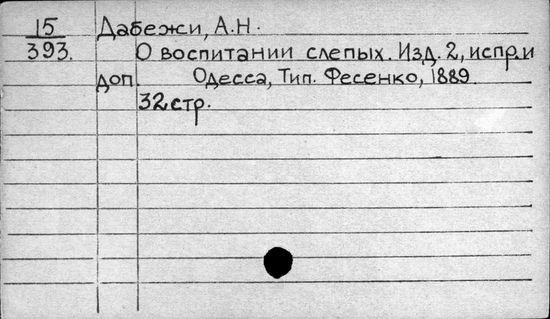 15 Дабежи, А.Н.
393. О воспитании слепых. Изд. 2, испр. и
доп Одесса, Тип. Фесенко, 1889
32 стр.